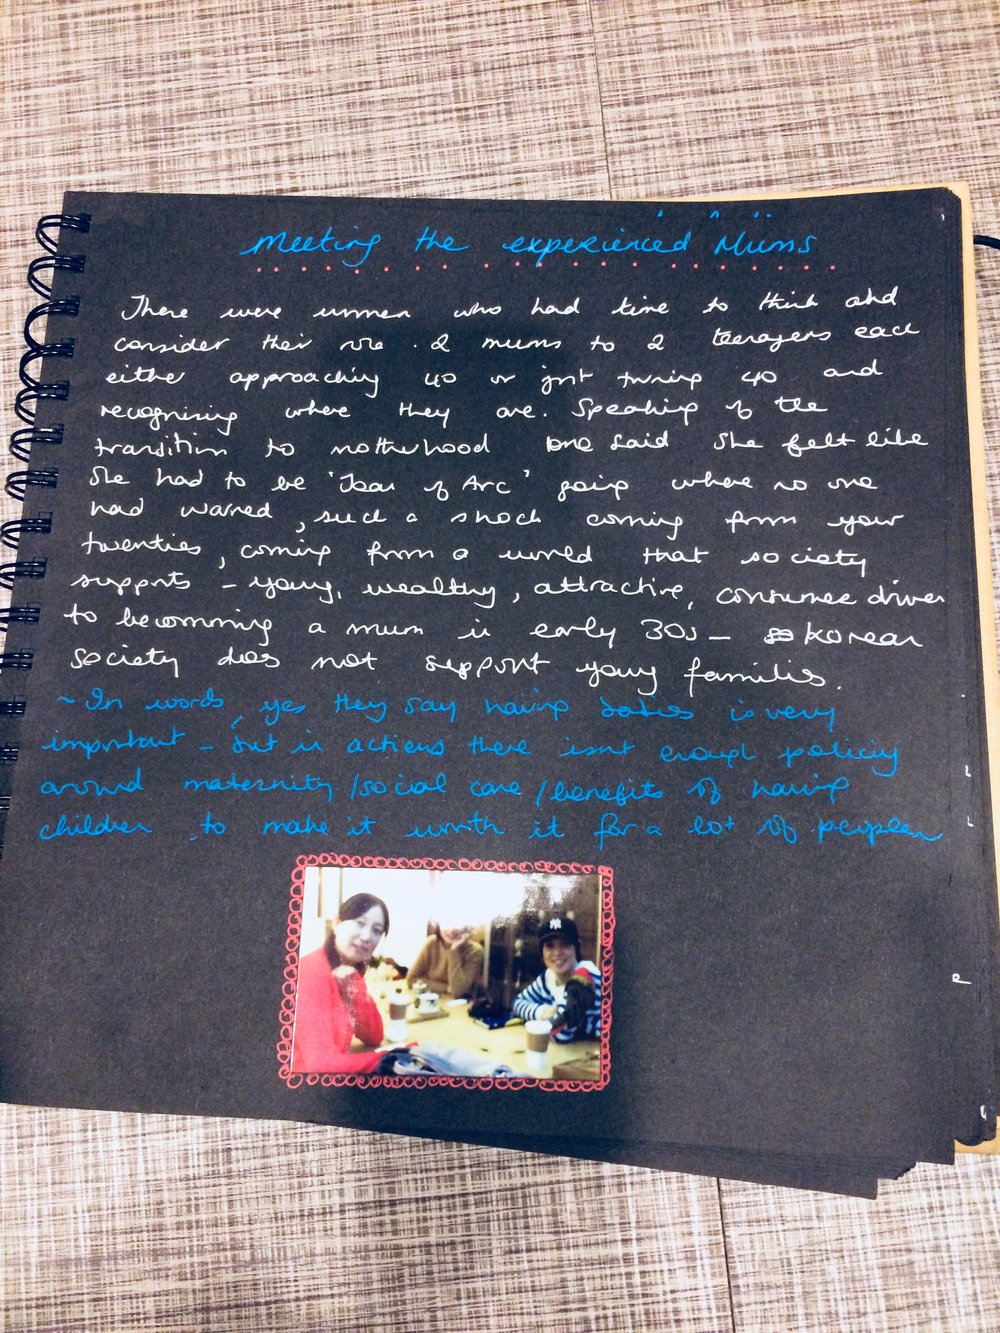 Meeting the experienced Mums
There were women who had time to think and
consider their role . 2 mums to 2 teenagers each
either approaching 40 or just turning 40 and
recognising where they are. Speaking of the
transition to motherhood one said she felt like
she had to be 'Joan of Arc' going where no one
had warned, such a shock coming from your
twenties, coming from a world that society
supports - young, wealthy, attractive, consumer driven
to becomming a mum in early 30s - Korean
society does not support young families.
~ In words, yes they say having babies is very
important - but in actions there isnt enough policiy
around maternity/social care/benefits of having
children to make it worth it for a lot of people
NY